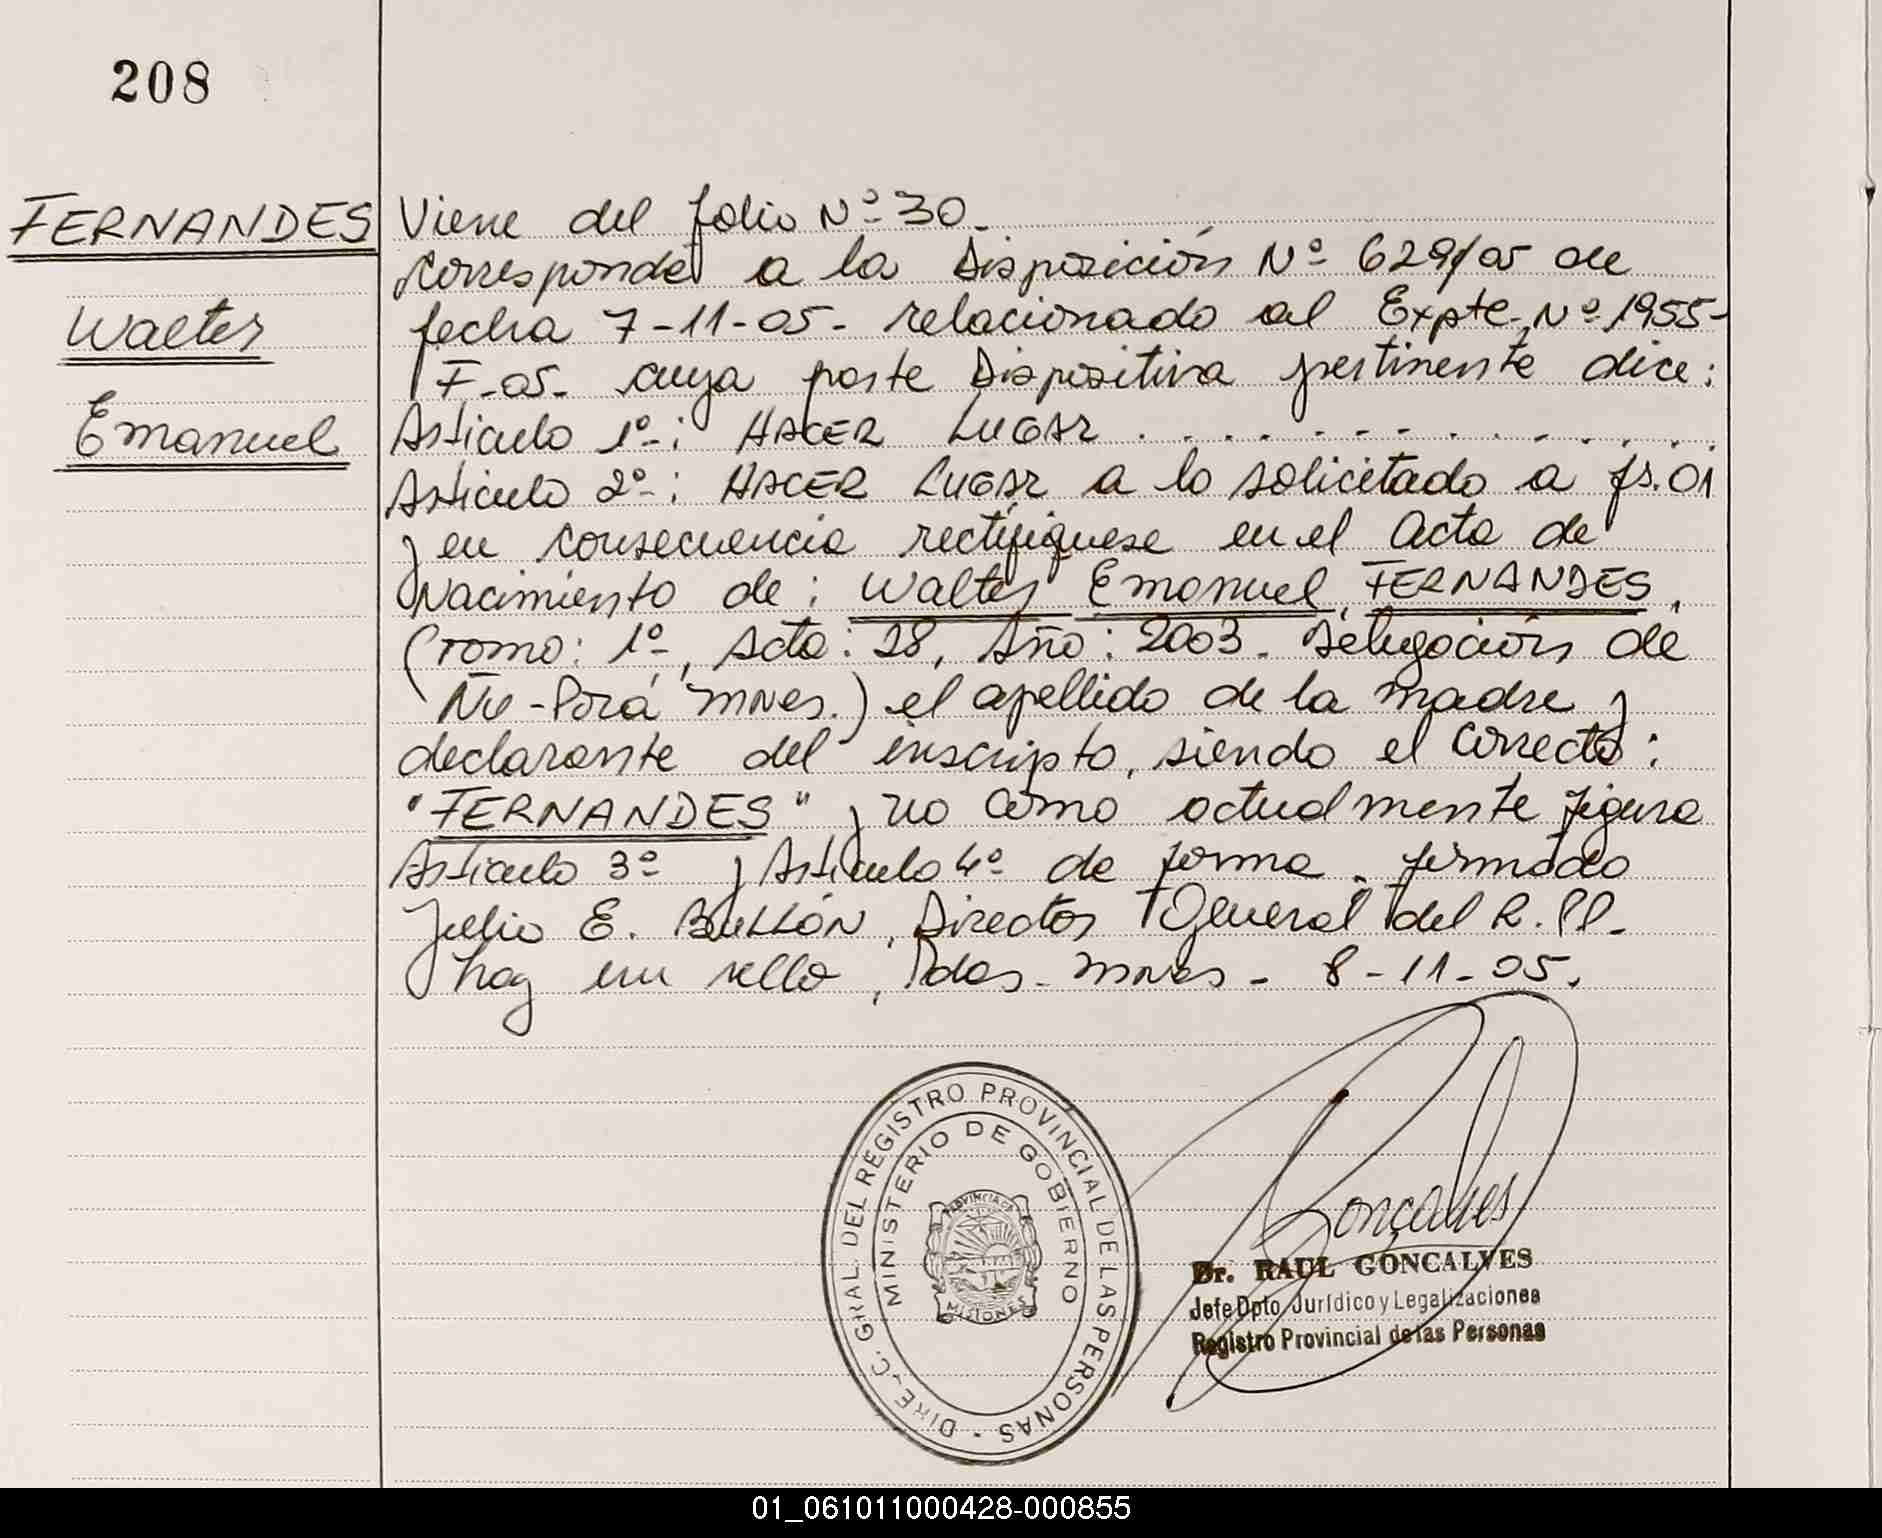 208
FERNANDES
Walter
Emanuel
Viene del folio Nº 30.
Corresponde a la Disposición Nº 629/05 de
fecha 7-11-05- relacionado al Expte. Nº 1955-
F-05- cuya parte Dispositiva pertinente dice:
Articulo 1º-: HACER LUGAR . . . . . . . . . . . . . .
Articulo 2º-: HACER LUGAR a lo solicitado a fs. 01
y en consecuencia rectifiquese en el Acta de
Nacimiento de: Walter Emanuel FERNANDES,
(Tomo: 1º-, Acta: 28, Año: 2003. Delegación de
Ñu-Porá Mnes.) el apellido de la madre y
declarante del inscripto, siendo el correcto:
"FERNANDES" y no como actualmente figura
Articulo 3º y Articulo 4º de forma. firmado
Julio E. BULLÓN, Director General del R.PP.
hay un sello, Pdas. Mnes - 8-11-05.
DIREC. GRAL. DEL REGISTRO PROVINCIAL DE LAS PERSONAS -
MINISTERIO DE GOBIERNO
PROVINCIA DE
MISIONES
Gonçalves
Dr. RAUL GONCALVES
Jefe Dpto Jurídico y Legalizaciones
Registro Provincial de las Personas
01_061011000428-000855